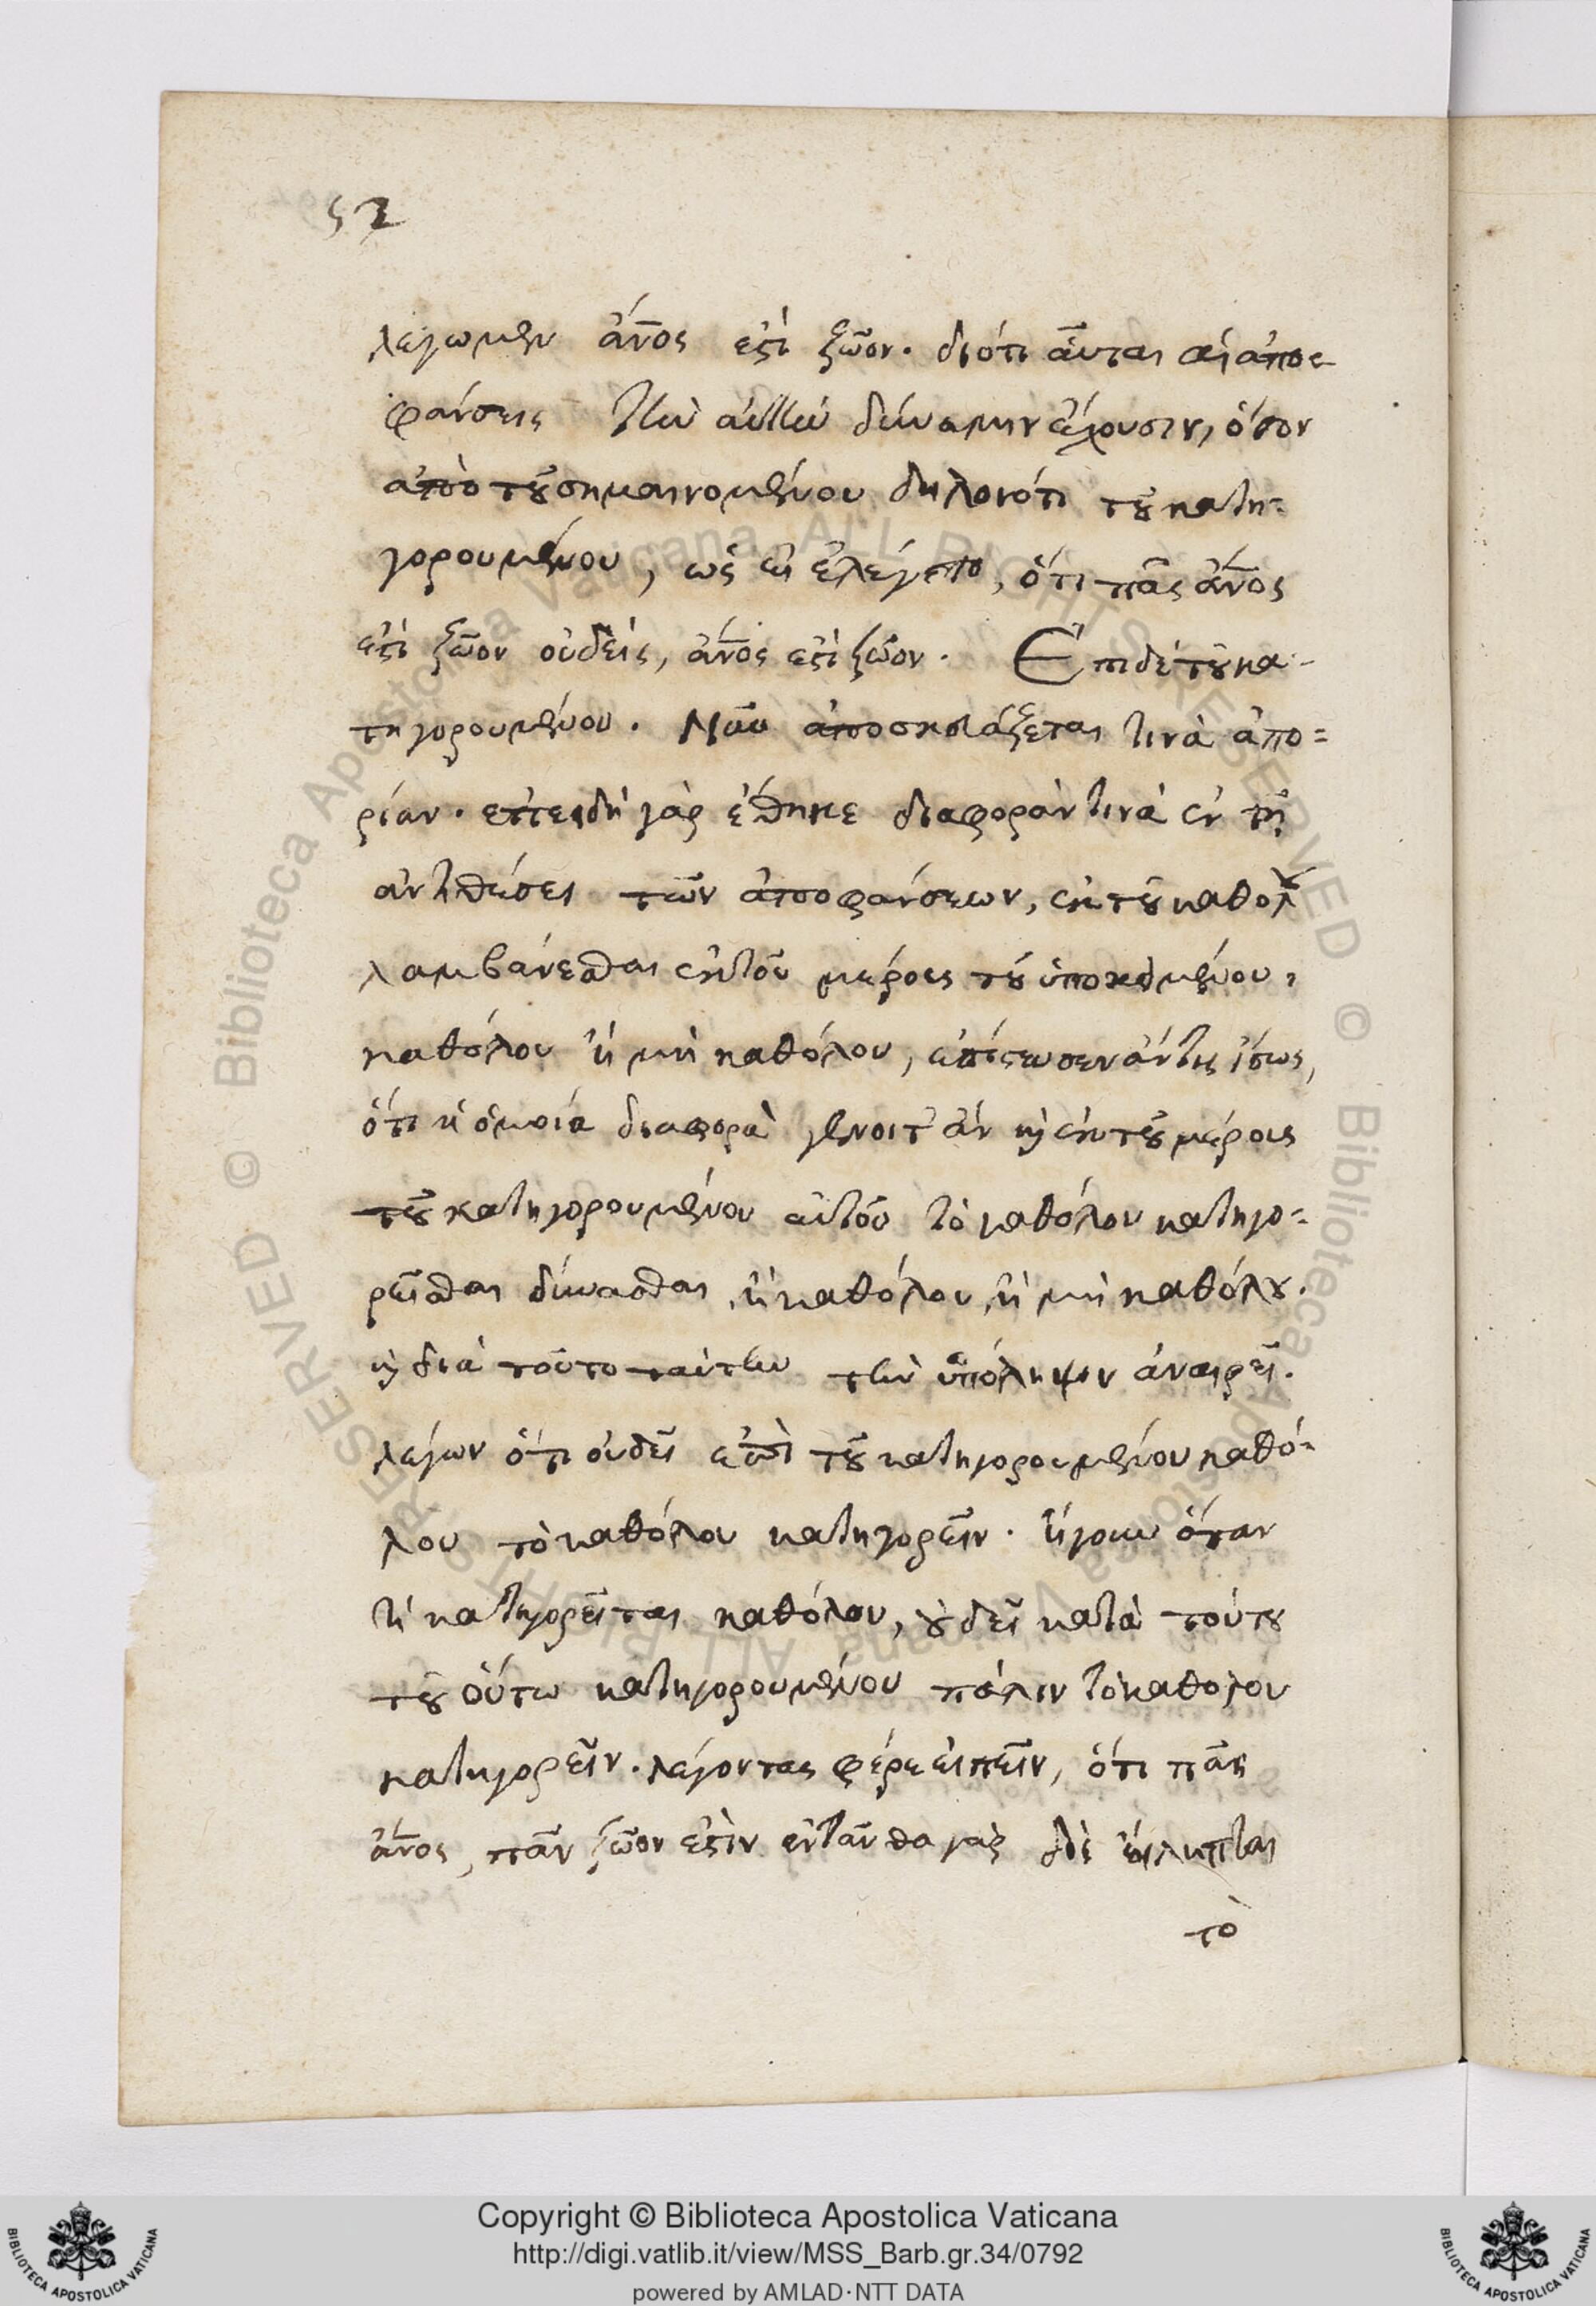 52
λέγωμεν ἄνος ἐστὶ ζῶον. διότι αὗται αἱ ἀπο-
φάνσεις τὴν αὐτὴν δύναμιν ἔχουσιν, ὅσον
ἀπὸ τοῦ σημαινομένου δηλονότι τοῦ κατη-
γορουμένου, ὡς εἰ ἐλέγετο, ὅτι πᾶς ἄνος
ἐστὶ ζῶον οὐδεὶς, ἄνος ἐστὶ ζῶον. Ἐπὶ δὲ τοῦ κα-
τηγορουμένου. Νῦν ἀποσκευάζεται τινὰ ἀπο=
ρίαν. ἐπειδὴ γὰρ ἔθηκε διαφοράν τινα ἐν τῇ
ἀντιθέσει τῶν ἀποφάνσεων, ἐκ τοῦ καθόλ
λαμβάνεσθαι ἐκ τοῦ μέρους τοῦ ὑποκειμένου,
καθόλου ἢ μὴ καθόλου, ἄν τις ἴσως,
ὅτι ἡ ὁμοία διαφορὰ γένοιτ' ἂν καὶ ἐκ τοῦ μέρους
τοῦ κατηγορουμένου αὐτοῦ τὸ καθόλου κατηγο=
ρεῖσθαι δύνασθαι, ἢ καθόλου, ἢ μὴ καθόλου.
καὶ διὰ τοῦτο ταύτην τὴν ὑπόληψιν ἀναιρεῖ.
λέγων ὅτι οὐδεῖ ἐπὶ τοῦ κατηγορουμένου καθό=
λου τὸ καθόλου κατηγορεῖν. ἤγουν ὅταν
τὶ κατηγορεῖται καθόλου, οὐ δεῖ κατὰ τούτου
τοῦ οὕτω κατηγορουμένου πάλιν τὸ καθόλου
κατηγορεῖν. λέγοντας φέρε εἰπεῖν, ὅτι πᾶς
ἄνος, πᾶν ζῶον ἐστὶν ἐνταῦθα γὰρ δὶς εἴληπται
τὸ
Copyright © Biblioteca Apostolica Vaticana
http://digi.vatlib.it/view/MSS_Barb.gr.34/0792
powered by AMLAD·NTT DATA